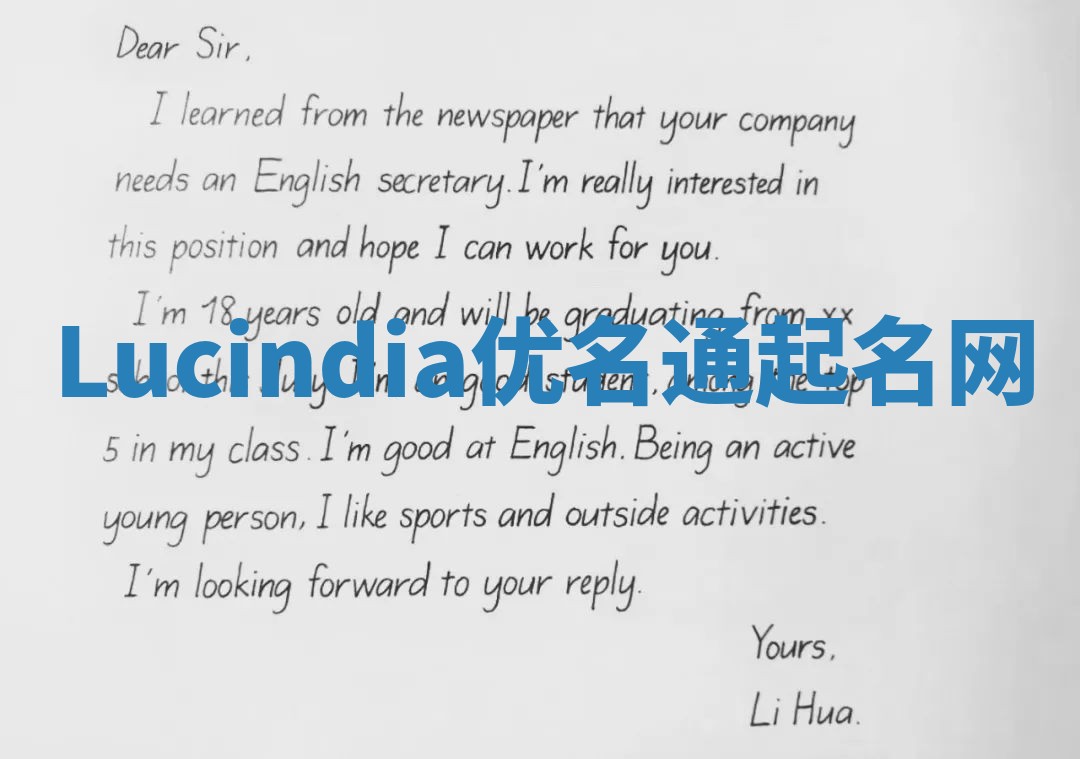 Dear Sir,
I learned from the newspaper that your company
needs an English secretary. I'm really interested in
this position and hope I can work for you.
I'm 18 years old and will be graduating from xx
Lucindia优名通起名网
school this July. I'm an good student, among the top
5 in my class. I'm good at English. Being an active
young person, I like sports and outside activities.
I'm looking forward to your reply.
Yours,
Li Hua.